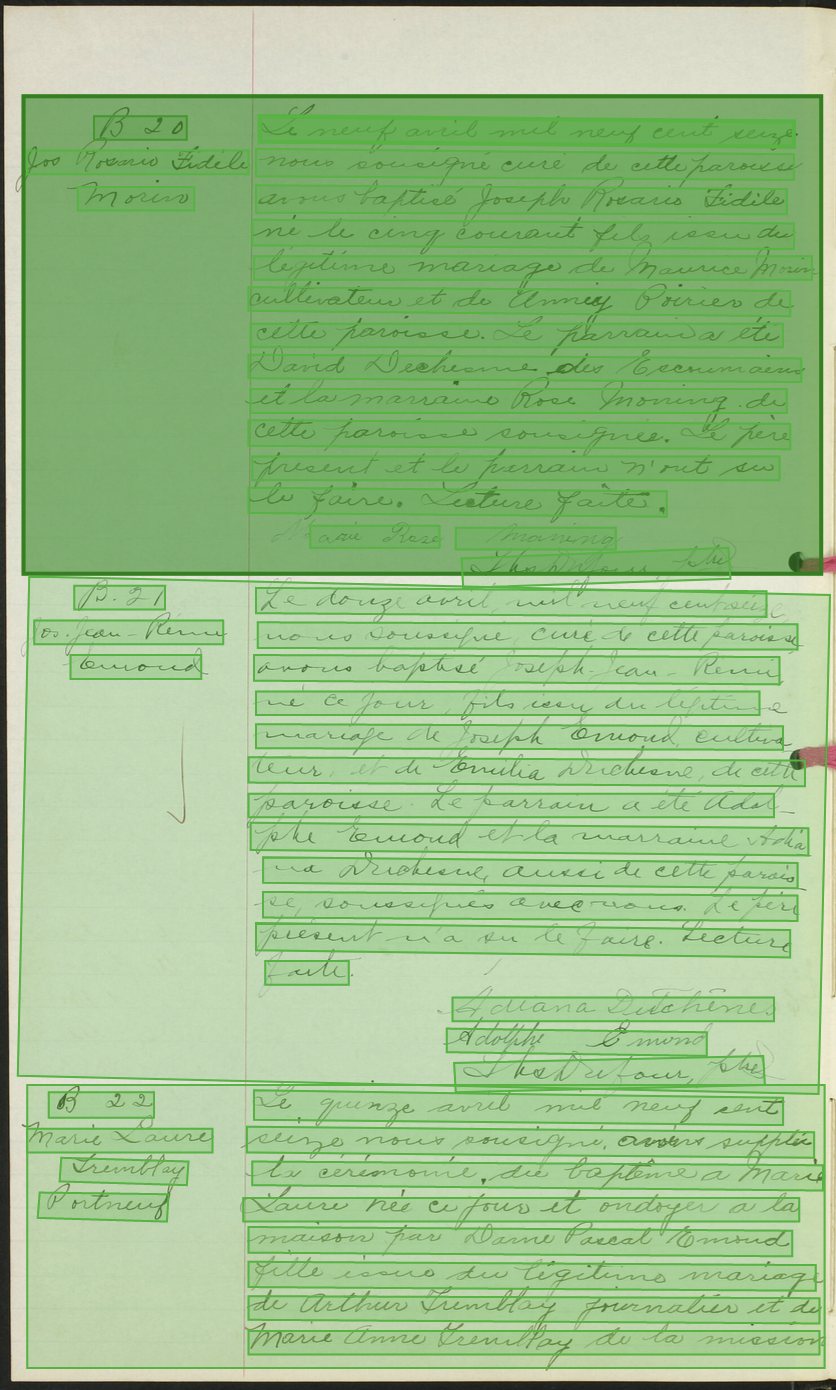 B 20
Jos Rosario Fidèle
Morin
Le neuf avril mil neuf cent seize
nous sousigné curé de cette paroisse
avons baptisé Joseph Rosario Fidèle
né le cinq courant fils issu du
légitime mariage de Maurice Morin
cultivateur et de Anney Poirier de
cette paroisse. Le parrain a été
David Dechesne des Escoumains
et la marraine Rose Moning de
cette paroisse sousignée. Le père
présent et le parrain n'ont su
le faire. Lecture faite.
Marie Rose Moning
Ths Dufour, ptre
B. 21
Jos. Jean-Rémi
Emond
Le douze avril, mil neuf cent seize,
nous soussigné, curé de cette paroisse
avons baptisé Joseph-Jean-Rémi,
né ce jour, fils issu du légitime
mariage de Joseph Emond, cultiva
teur, et de Emilia Duchesne, de cette
paroisse. Le parrain a été Adol-
phe Emond et la marraine Adria
na Duchesne, aussi de cette parois
se, soussignés avec nous. Le père
présent n'a su le faire. Lecture
faite.
Adriana Dutchênes
Adolphe Emond
Ths Dufour, ptre
B 22
Marie Laure
Tremblay
Portneuf
Le quinze avril mil neuf cent
seize nous sousigné, avons supplée
la cérémonie, du baptême a Marie
Laure née ce jour et ondoyer a la
maison par Dame Pascal Emond
fille issue du légitime mariage
de Arthur Tremblay journalier et de
Marie Anne Tremblay de la mission